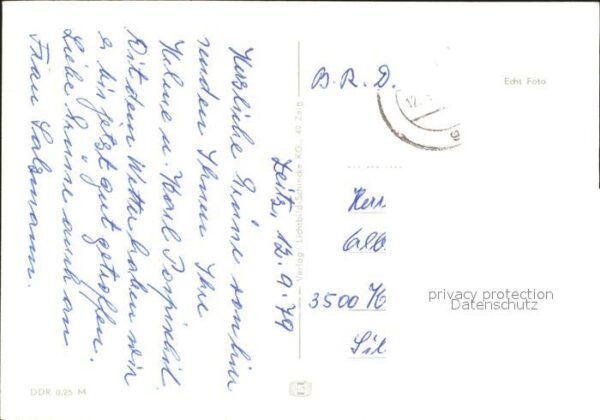 Zeitz, 12.9.79
Herzliche Grüße von hier
senden Ihnen Ihre
Helme u. Horst
Mit dem Wetter haben wir
es bis jetzt gut getroffen.
Liebe Grüße auch an
Frau Salzmann.
B.R.D.
Echt Foto
12.
Herr
Alb
3500 K
Sil
privacy protection
Datenschutz
Verlag: Lichtbild-Schincke KG., 49 Zeitz
DDR 0,25 M